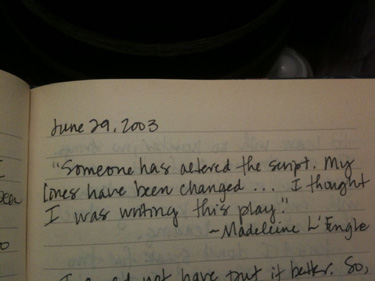 June 29, 2003
"Someone has altered the script. My
lines have been changed ... I thought
I was writing this play."
~Madeleine L'Engle
not have put it better. So,